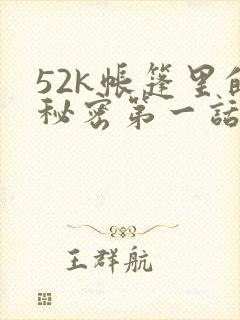 52k帳篷里的
秘密第一話
王群航